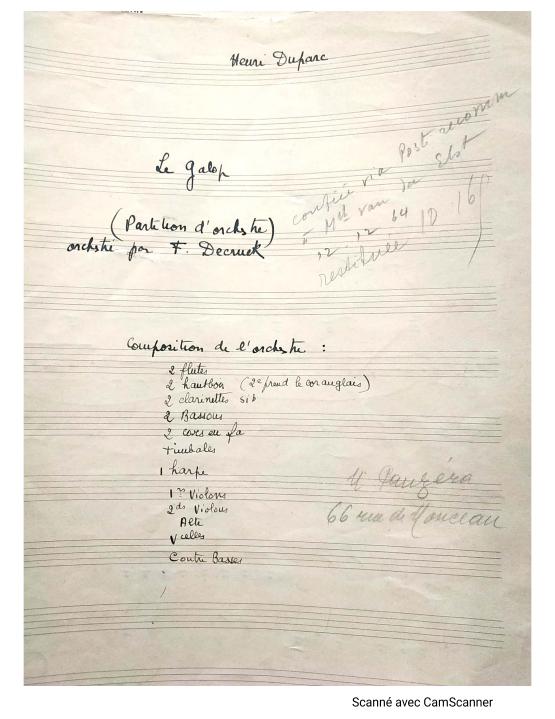 Henri Duparc
Le Galop
confiée via Post recomm
à Mel van der Elst
12.12.64
restituée 10.16
(Partition d'orchstre)
orchstré par F. Decruck
Composition de l'orchstre :
2 flutes
2 hautbois (2e prend le cor anglais)
2 clarinettes sib
2 Bassons
2 cors en fa
timbales
1 harpe
1ers Violons
2ds Violons
Alte
Vcelles
Contre Basses
M Panzéra
66 rue de Monceau
Scanné avec CamScanner